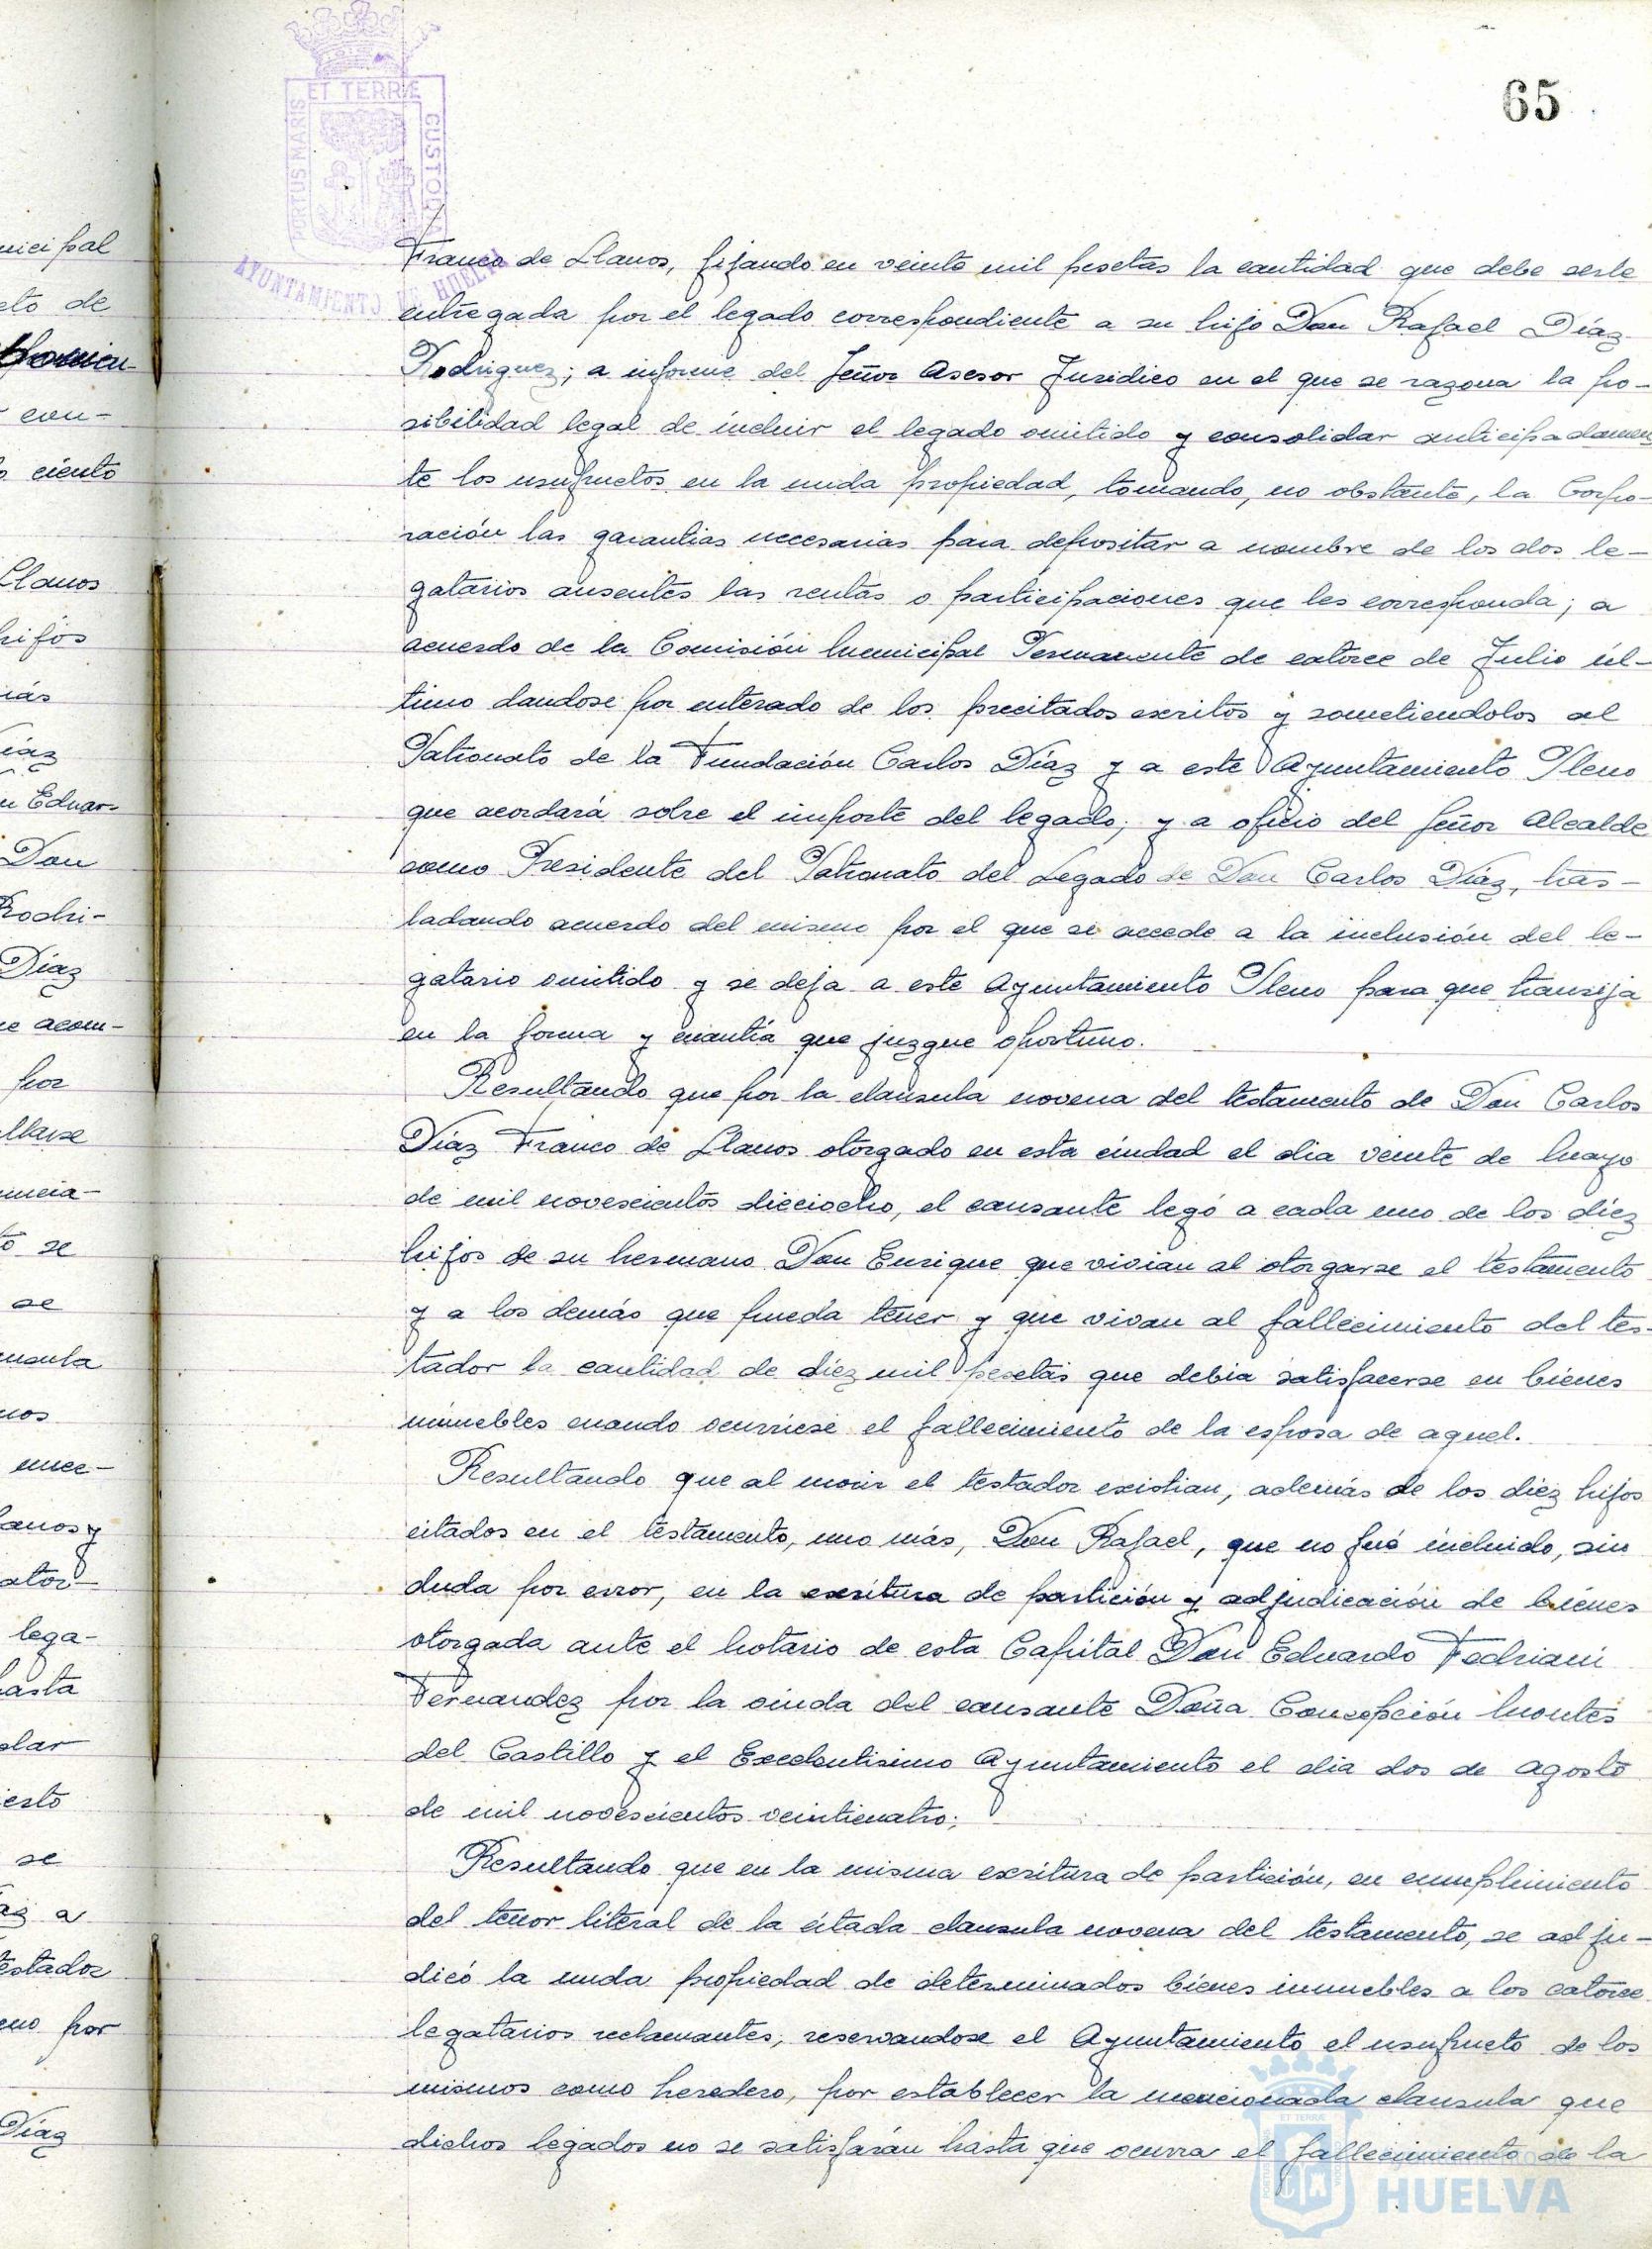 65
ET TERRÆ
PORTUS MARIS
CUSTODIA
AYUNTAMIENTO DE HUELVA
Franco de Llanos, fijando en veinte mil pesetas la cantidad que debe serle
entregada por el legado correspondiente a su hijo Don Rafael Díaz
Rodriguez; a informe del Señor Asesor Jurídico en el que se razona la po-
sibilidad legal de incluir el legado omitido y consolidar anticipadamen
te los usufructos en la nuda propiedad, tomando, no obstante, la Corpo-
ración las garantias necesarias para depositar a nombre de los dos le-
gatarios ausentes las rentas o participaciones que les corresponda; a
acuerdo de la Comisión Municipal Permanente de catorce de Julio úl-
timo dandose por enterado de los precitados escritos y sometiendolos al
Patronato de la Fundación Carlos Díaz y a este Ayuntamiento Pleno
que acordará sobre el importe del legado; y a oficio del Señor Alcalde
como Presidente del Patronato del Legado de Don Carlos Díaz, tras-
ladando acuerdo del mismo por el que se accede a la inclusión del le-
gatario omitido y se deja a este Ayuntamiento Pleno para que transija
en la forma y cuantía que juzgue oportuno.
Resultando que por la clausula novena del testamento de Don Carlos
Díaz Franco de Llanos otorgado en esta ciudad el dia veinte de Mayo
de mil novescientos dieciocho, el causante legó a cada uno de los diez
hijos de su hermano Don Enrique que vivian al otorgarse el testamento
y a los demás que pueda tener y que vivan al fallecimiento del tes-
tador la cantidad de diez mil pesetas que debia satisfacerse en bienes
inmuebles cuando ocurriese el fallecimiento de la esposa de aquel.
Resultando que al morir el testador existian, además de los diez hijos
citados en el testamento, uno más, Don Rafael, que no fué incluido, sin
duda por error, en la escritura de partición y adjudicación de bienes
otorgada ante el Notario de esta Capital Don Eduardo Fedriani
Fernandez por la viuda del causante Doña Concepción Montes
del Castillo y el Excelentisimo Ayuntamiento el dia dos de agosto
de mil novescientos veinticuatro;
Resultando que en la misma escritura de partición, en cumplimiento
del tenor literal de la citada clausula novena del testamento, se adju-
dicó la nuda propiedad de determinados bienes inmuebles a los catorce
legatarios reclamantes, reservandose el Ayuntamiento el usufructo de los
mismos como heredero, por establecer la mencionada clausula que
dichos legados no se satisfarán hasta que ocurra el fallecimiento de la
HUELVA
nicipal
eto de
con-
ciento
Llanos
hijos
más
Díaz
Eduar-
Don
Rodri-
Díaz
acom-
por
llarse
uncia-
se
se
nos
lega-
hasta
esto
se
a
testador
por
Díaz